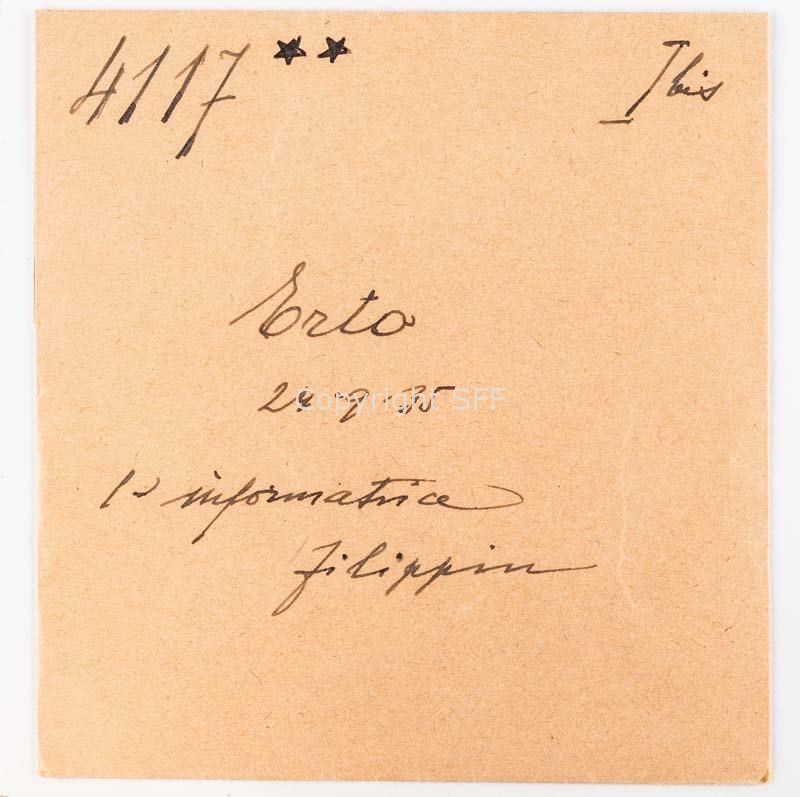 4117 ★★ I bis
Erto
24-9-35
Copyright SFF
1a informatrice
Filippin